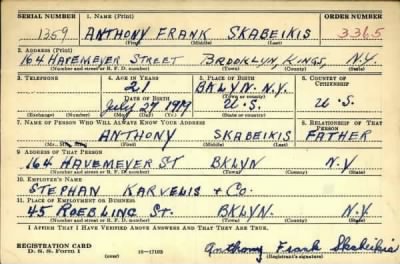 SERIAL NUMBER 1. NAME (Print) ORDER NUMBER
1359 ANTHONY FRANK SKABEIKIS 3365
(First) (Middle) (Last)
2. ADDRESS (Print)
164 HAVEMEYER STREET BROOKLYN, KINGS, N.Y.
(Number and street or R. F. D. number) (Town) (County) (State)
3. TELEPHONE 4. AGE IN YEARS 5. PLACE OF BIRTH 6. COUNTRY OF CITIZENSHIP
21 BKLYN. N.Y.
DATE OF BIRTH (Town or county)
July 27 1919 U.S. U.S.
(Exchange) (Number) (Mo.) (Day) (Yr.) (State or country)
7. NAME OF PERSON WHO WILL ALWAYS KNOW YOUR ADDRESS 8. RELATIONSHIP OF THAT PERSON
ANTHONY SKABEIKIS FATHER
(First) (Middle) (Last)
9. ADDRESS OF THAT PERSON
164 HAVEMEYER ST BKLYN N.Y
(Number and street or R. F. D. number) (Town) (County) (State)
10. EMPLOYER'S NAME
STEPHAN KARVELIS + CO.
11. PLACE OF EMPLOYMENT OR BUSINESS
45 ROEBLING ST. BKLYN. N.Y.
(Number and street or R. F. D. number) (Town) (County) (State)
I AFFIRM THAT I HAVE VERIFIED ABOVE ANSWERS AND THAT THEY ARE TRUE.
REGISTRATION CARD
D. S. S. Form 1 (over) 16—17105 Anthony Frank Skabeikis
(Registrant's signature)